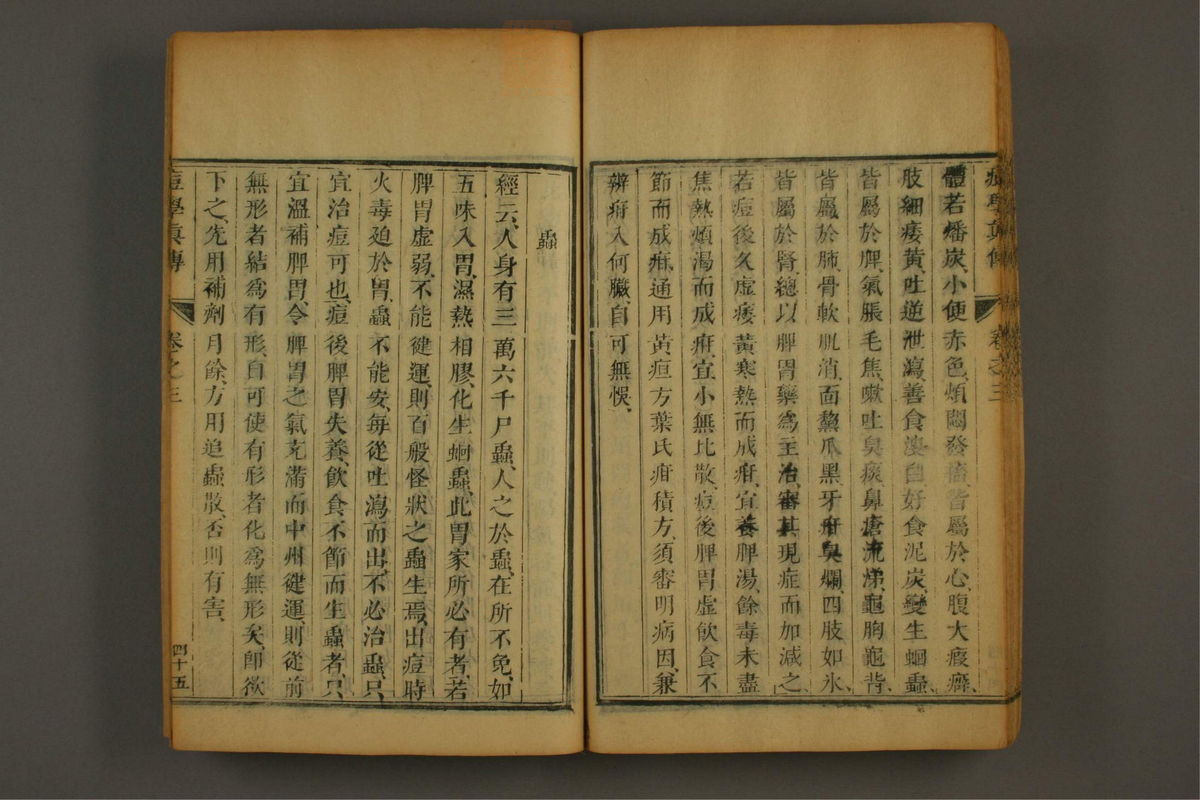 痘學真傳
卷之三
體若燔炭、小便赤色、煩悶發 皆屬於心、腹大痠癖、
肢細痿黃、吐逆泄瀉、善食 自好食泥炭、變生蛔蟲、
皆屬於脾、氣脹毛焦、嗽吐臭痰、鼻瘡流涕、龜胸龜背、
皆屬於肺、骨軟肌消、面黧爪黑、牙疳臭爛、四肢如氷、
皆屬於腎、總以脾胃藥爲主治、審其現症而加減之、
若痘後久虛痿黃寒熱而成疳、宜養脾湯、餘毒未盡
焦熱煩渴而成疳、宜小無比散、痘後脾胃虛飲食不
節而成疳、通用黃疸方、葉氏疳積方、須審明病因、兼
辨疳入何臟、自可無悞、
蟲
經云、人身有三萬六千尸蟲、人之於蟲、在所不免、如
五味入胃、濕熱相膠、化生蛔蟲、此胃家所必有者、若
脾胃虛弱、不能徤運、則百般怪狀之蟲生焉、出痘時
火毒廹於胃、蟲不能安、每從吐瀉而出、不必治蟲、只
宜治痘可也、痘後脾胃失養、飲食不節而生蟲者、只
宜溫補脾胃、令脾胃之氣充滿而中州徤運、則從前
無形者結爲有形、自可使有形者化爲無形矣、卽欲
下之、先用補劑月餘、方用追蟲散、否則有害、
痘學真傳
卷之三
四十五